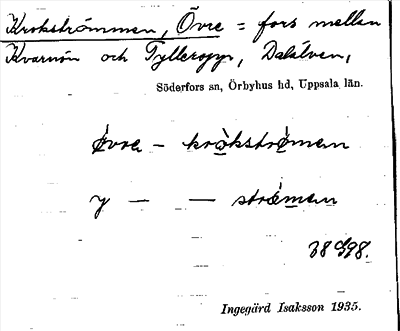 Krokströmmen, Övre = fors mellan
Kvarnön och Tyllersgrp, Dalälven,
Söderfors sn, Örbyhus hd, Uppsala län.
övrə – krókstrǿmən
y – – strǿmən
Ingegärd Isaksson 1935.